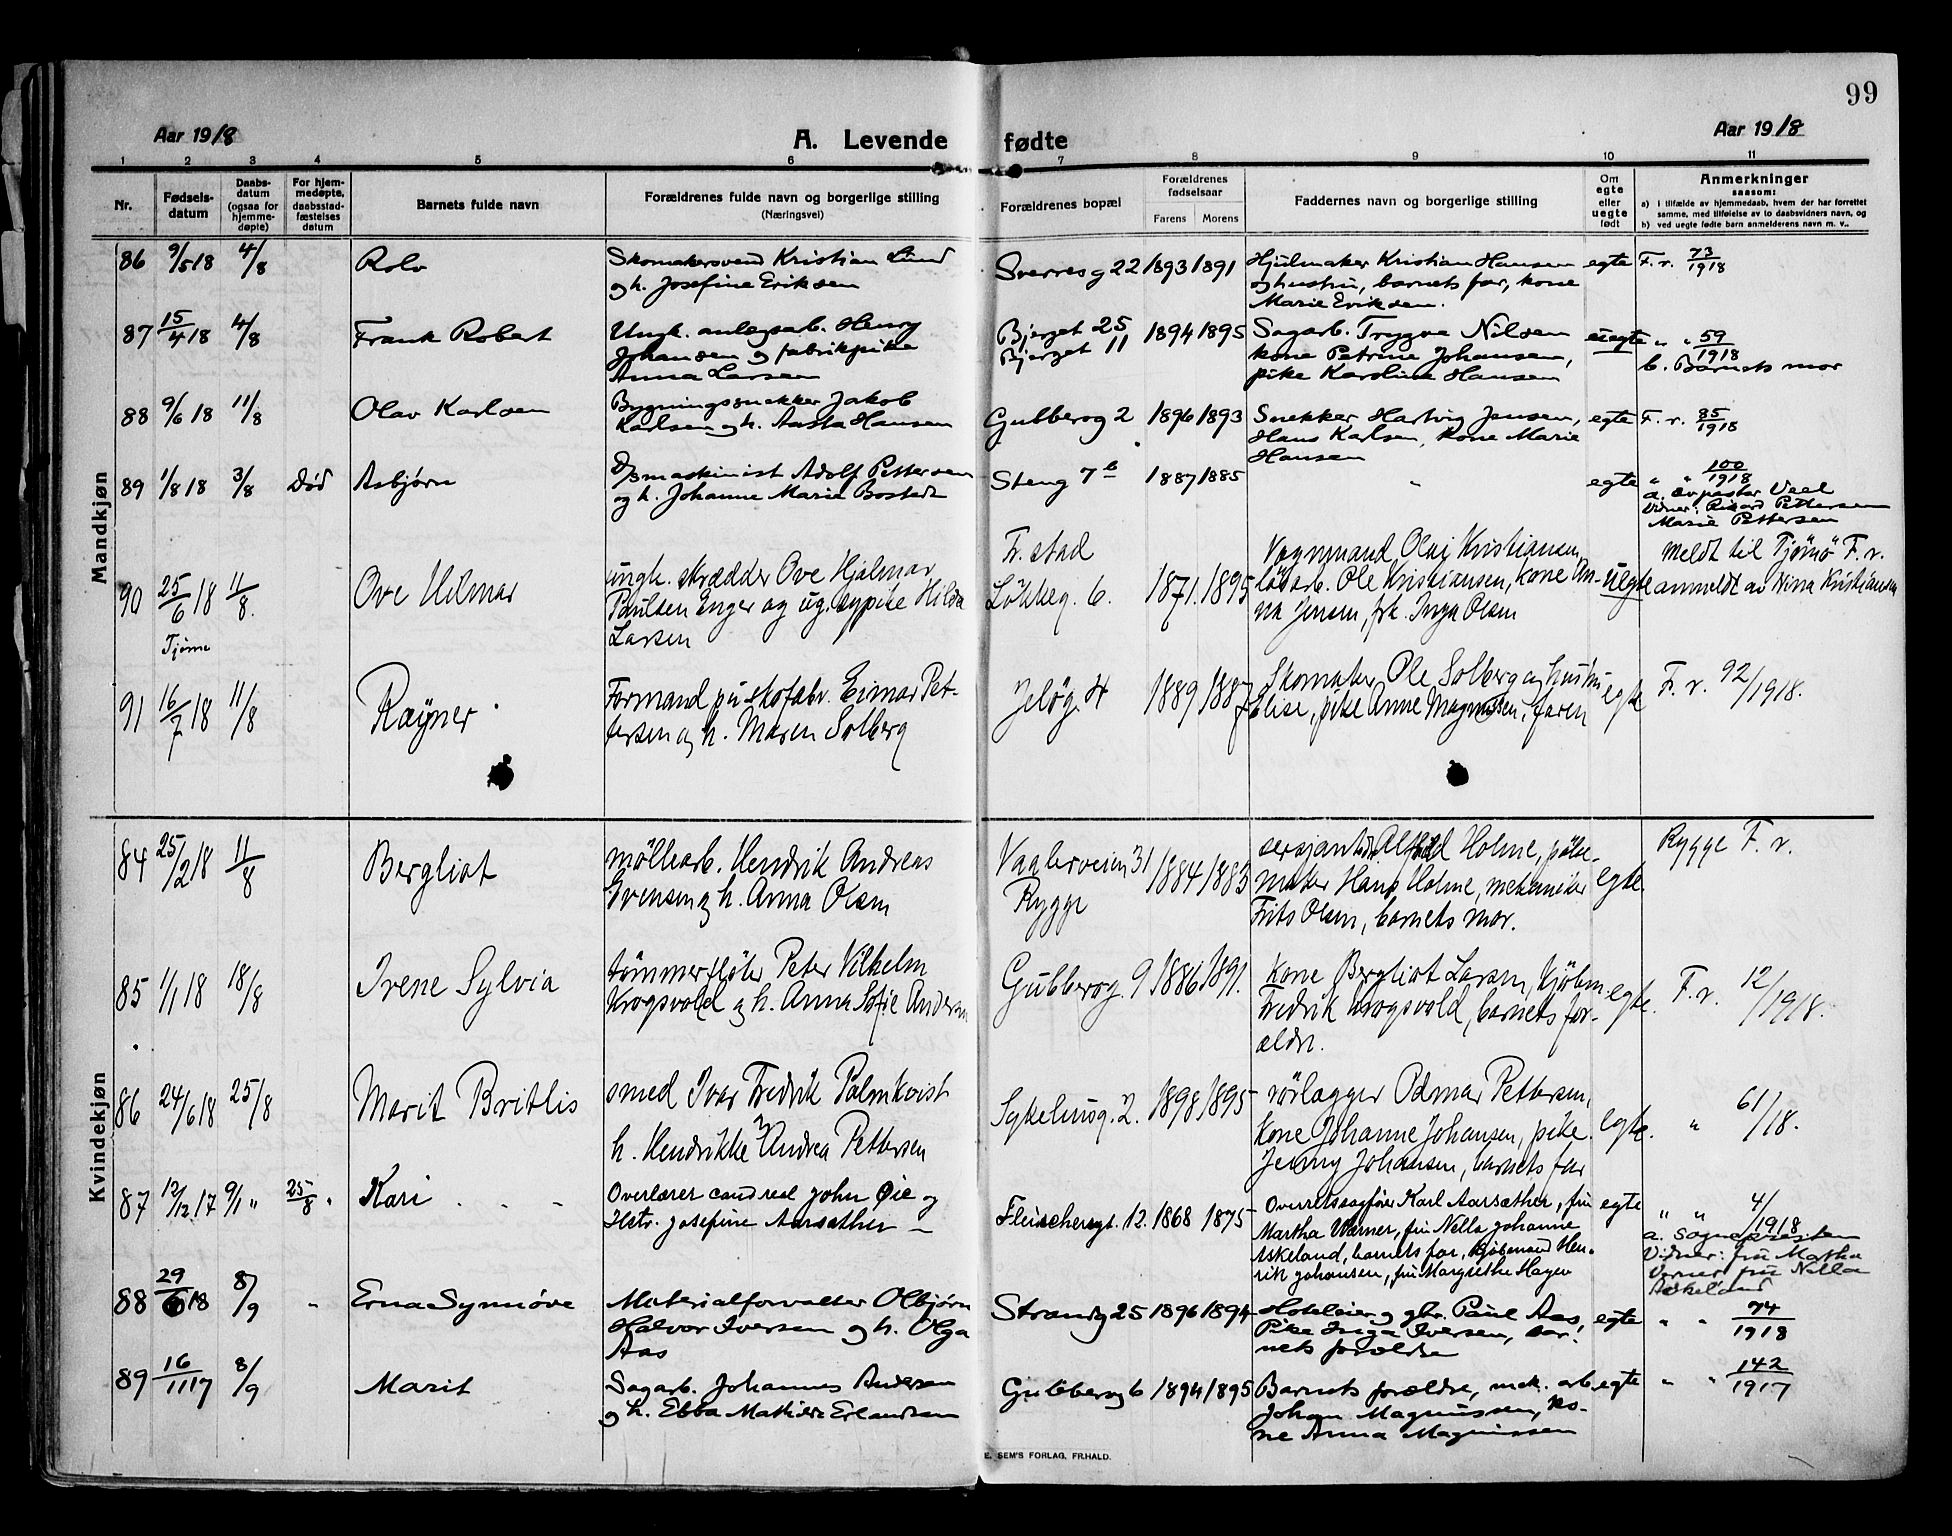 99
Aar 1918 A. Levende fødte Aar 1918
1 2 3 4 5 6 7 8 9 10 11
Nr. Fødsels-datum Daabs-datum (ogsaa for hjemme-døpte) For hjem-medøpte, daabsstad-fæstelses datum Barnets fulde navn Forældrenes fulde navn og borgerlige stilling (Næringsvei) Forældrenes bopæl Forældrenes fødselsaar Farens Morens Faddernes navn og borgerlige stilling Om egte eller uegte født Anmerkninger saasom: a) i tilfælde av hjemmedaab, hvem der har forrettet samme, med tilføielse av to daabsvidners navn, og b) ved uegte fødte barn anmelderens navn m. v..
Mandkjøn
86 9/5 18 4/8 Rolv Skomakersvend Kristian Lund Sverresg 22 1893 1891 Hjulmaker Kristian Hansen egte F. r. 73/1918
og h. Josefine Eriksen og hustru, barnets far, kone
Marie Eriksen.
87 15/4 18 4/8 Frank Robert Ungk. anlegsarb. Henry Bjerget 25 1894 1895 Sagarb. Trygve Nilsen uegte " " 59/1918
Johansen og fabrikpike Bjerget 11 kone Petrine Johansen,
Anna Larsen pike Karoline Hansen b. Barnets mor
88 9/6 18 11/8 Olav Karlsen Bygningssnekker Jakob Gubberog 2 1896 1893 Snekker Hartvig Jensen, egte F. r. 85/1918
Karlsen og h. Aasta Hansen Hans Karlsen, kone Marie
Hansen
89 1/8 18 3/8 Död Asbjørn D/smaskinist Adolf Pettersen Steng 7 b 1887 1885 " egte " " 100/1918
og h. Johanne Marie Bostedt a.
Vidner: Rikard Pettersen
Marie Pettersen
90 25/6 18 11/8. Ove Hilmar ungk. skrædder Ove Hjalmar Fr.stad Vognmand Olaf Kristiansen, Meldt til Tjømö F. r.
Paulsen Enger og ug. sypike Hilda Lökkeg. 6. 1871. 1895 lösarb. Ole Kristiansen, kone An- uegte anmeldt av Nina Kristiansen
Tjøme Larsen na Jensen, frk. Inga Olsen
91 16/7 18 11/8 Raÿner Formand på skofabr. Eimar Pet- Jelög. 4 1889 1887 Skomaker Ole Solberg og hustru egte F. r. 92/1918.
tersen og h. Maren Solberg Elise, pike Anne Magnussen, faren
Kvindekjøn
84 25/2 18 11/8 Bergliot möllearb. Hendrik Andreas Vaalerveien 31 1884 1883 sersjant Holme, pölse- egte. Rygge F. r.
Evensen og h. Anna Olsen Rygge maker Hans Holme, mekaniker
Frits Olsen, barnets mor.
85 1/1 18 18/8 Irene Sylvia tömmerflöter Peter Vilhelm Gubberog 9 1886 1891. Kone Bergliot Larsen, kjöbm. egte. F. r. 12/1918.
Krogsvold og h. Anna Sofie Andersen Fredrik Krogsvold, barnets for-
ældre.
86 24/6 18 25/8 Marit Britlis smed Ivar Fredrik Palmkvist Sykehusg. 2. 1898 1895 rörlægger Odmar Pettersen, egte. " 61/18.
h. Hendrikke Andrea Pettersen Kone Johanne Johansen, pike
Jenny Johansen, barnets far
87 12/12 17 9/1 " 25/8 " Kari Overlærer cand real John Øie og Fleischersgt. 12. 1868 1875 Overretssagfører Karl Aarsæther, fru egte " " 4/1918
Hstr. Josefine Aarsæther Martha Werner, fru Nella Johanne a. Sognepresten
Askeland, barnets far, kjøbmand Hen- Vidner: fru Martha
rik Johansen, fru Margrethe Hagen Verner fru Nella
Askeland
88 29/6 18 8/9 " Erna Synnöve Materialforvalter Olbjørn Strandg 25 1896 1894 Hoteleier og gbr. Paul Aas, egte " " 74/1918
Halvor Iversen og h. Olga Pike Inga Iversen, bar-
Aas nets forældre
89 16/11 17 8/9 Marit Sagarb. Johannes Andersen Gubberog 6 1894 1895 Barnets forældre, mek. arb. egte " " 142/1917
og h. Ebba Mathilde Erlandsen Johan Magnussen, ko-
ne Anna Magnussen
E. SEM'S FORLAG, FR.HALD.